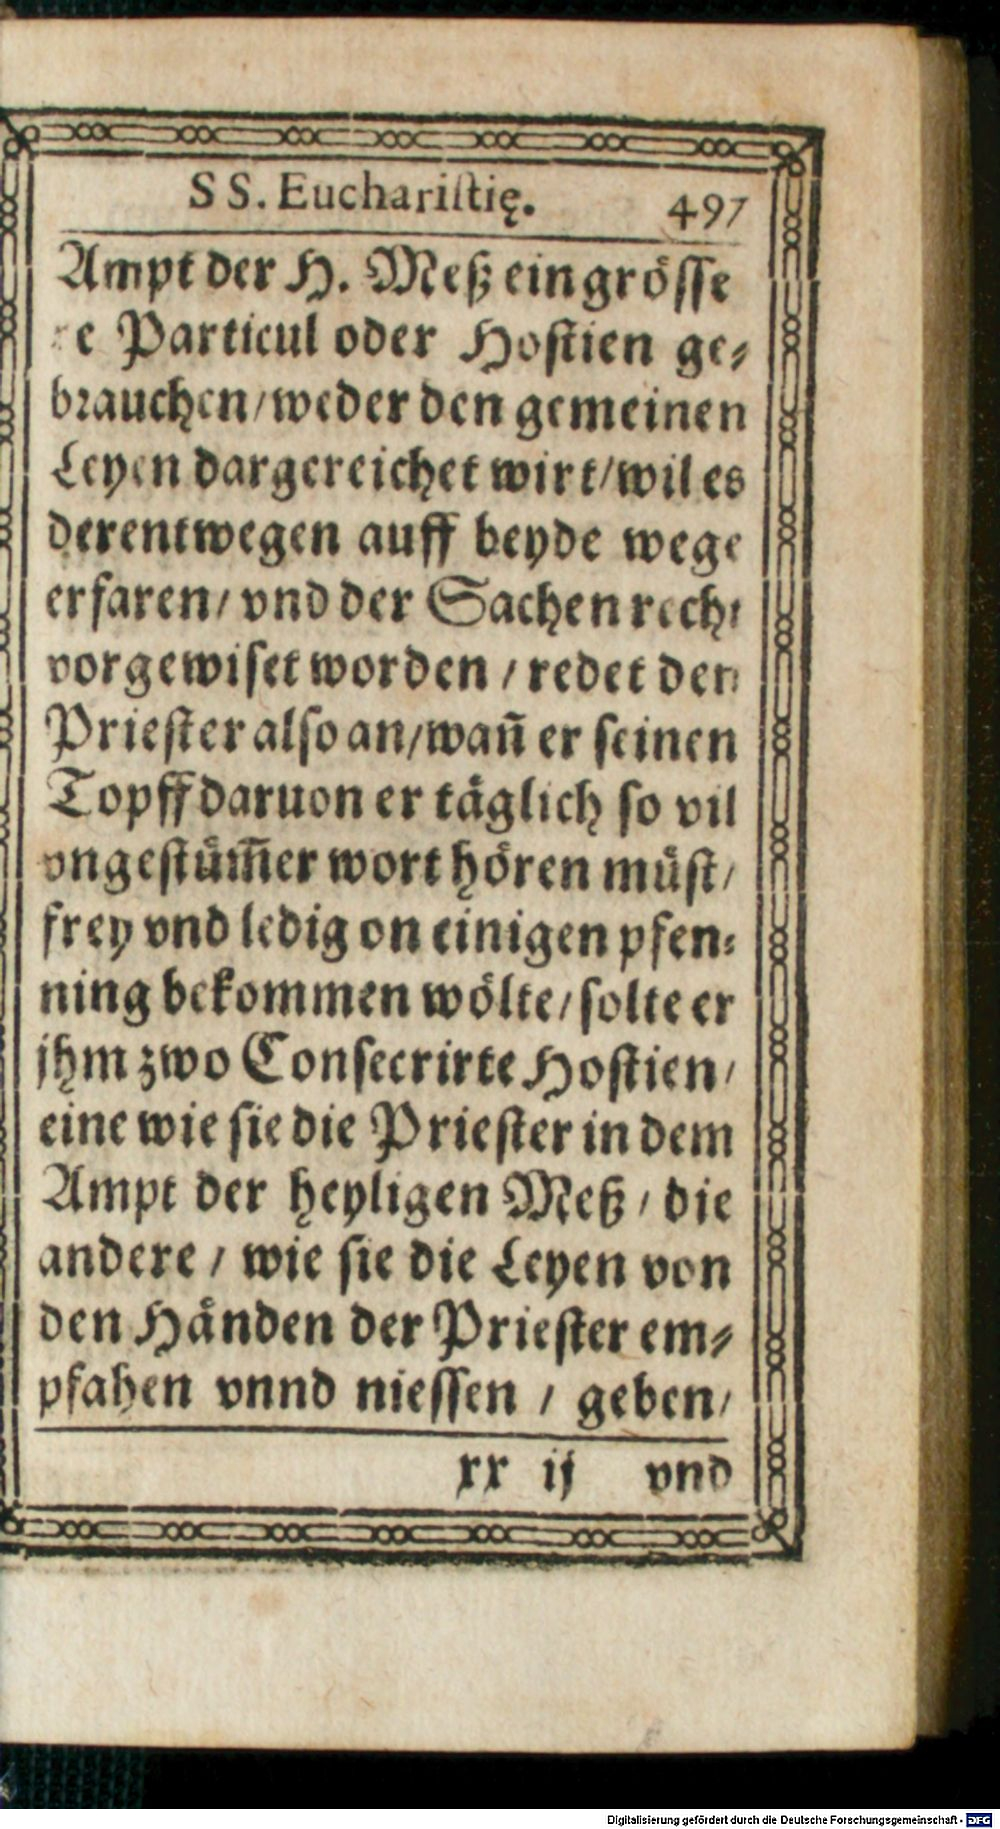 SS. Euchariſtię. 497
Ampt der H. Meß ein gröſſe
re Particul oder Hoſtien ge⸗
brauchen/ weder den gemeinen
Leyen dargereichet wirt/ wil es
derentwegen auff beyde wege
erfaren/ vnd der Sachen recht
vorgewiſet worden / redet den
Prieſter alſo an/ wañ er ſeinen
Topff daruon er täglich ſo vil
vngeſtüm̃er wort hören müſt/
frey vnd ledig on einigen pfen⸗
ning bekommen wölte/ ſolte er
jhm zwo Conſecrirte Hoſtien/
eine wie ſie die Prieſter in dem
Ampt der heyligen Meß / die
andere / wie ſie die Leyen von
den Händen der Prieſter em⸗
pfahen vnnd nieſſen / geben/
xx ij vnd
Digitalisierung gefördert durch die Deutsche Forschungsgemeinschaft - DFG